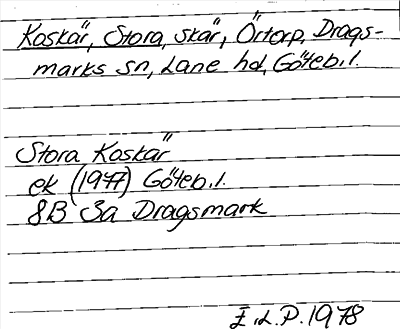 Koskär, Stora, skär, Örtorp, Drags-
marks sn, Lane hd, Göteb.l.
Stora Koskär
ek (1977) Göteb.l.
8B 3a Dragsmark
E.L.P. 1978